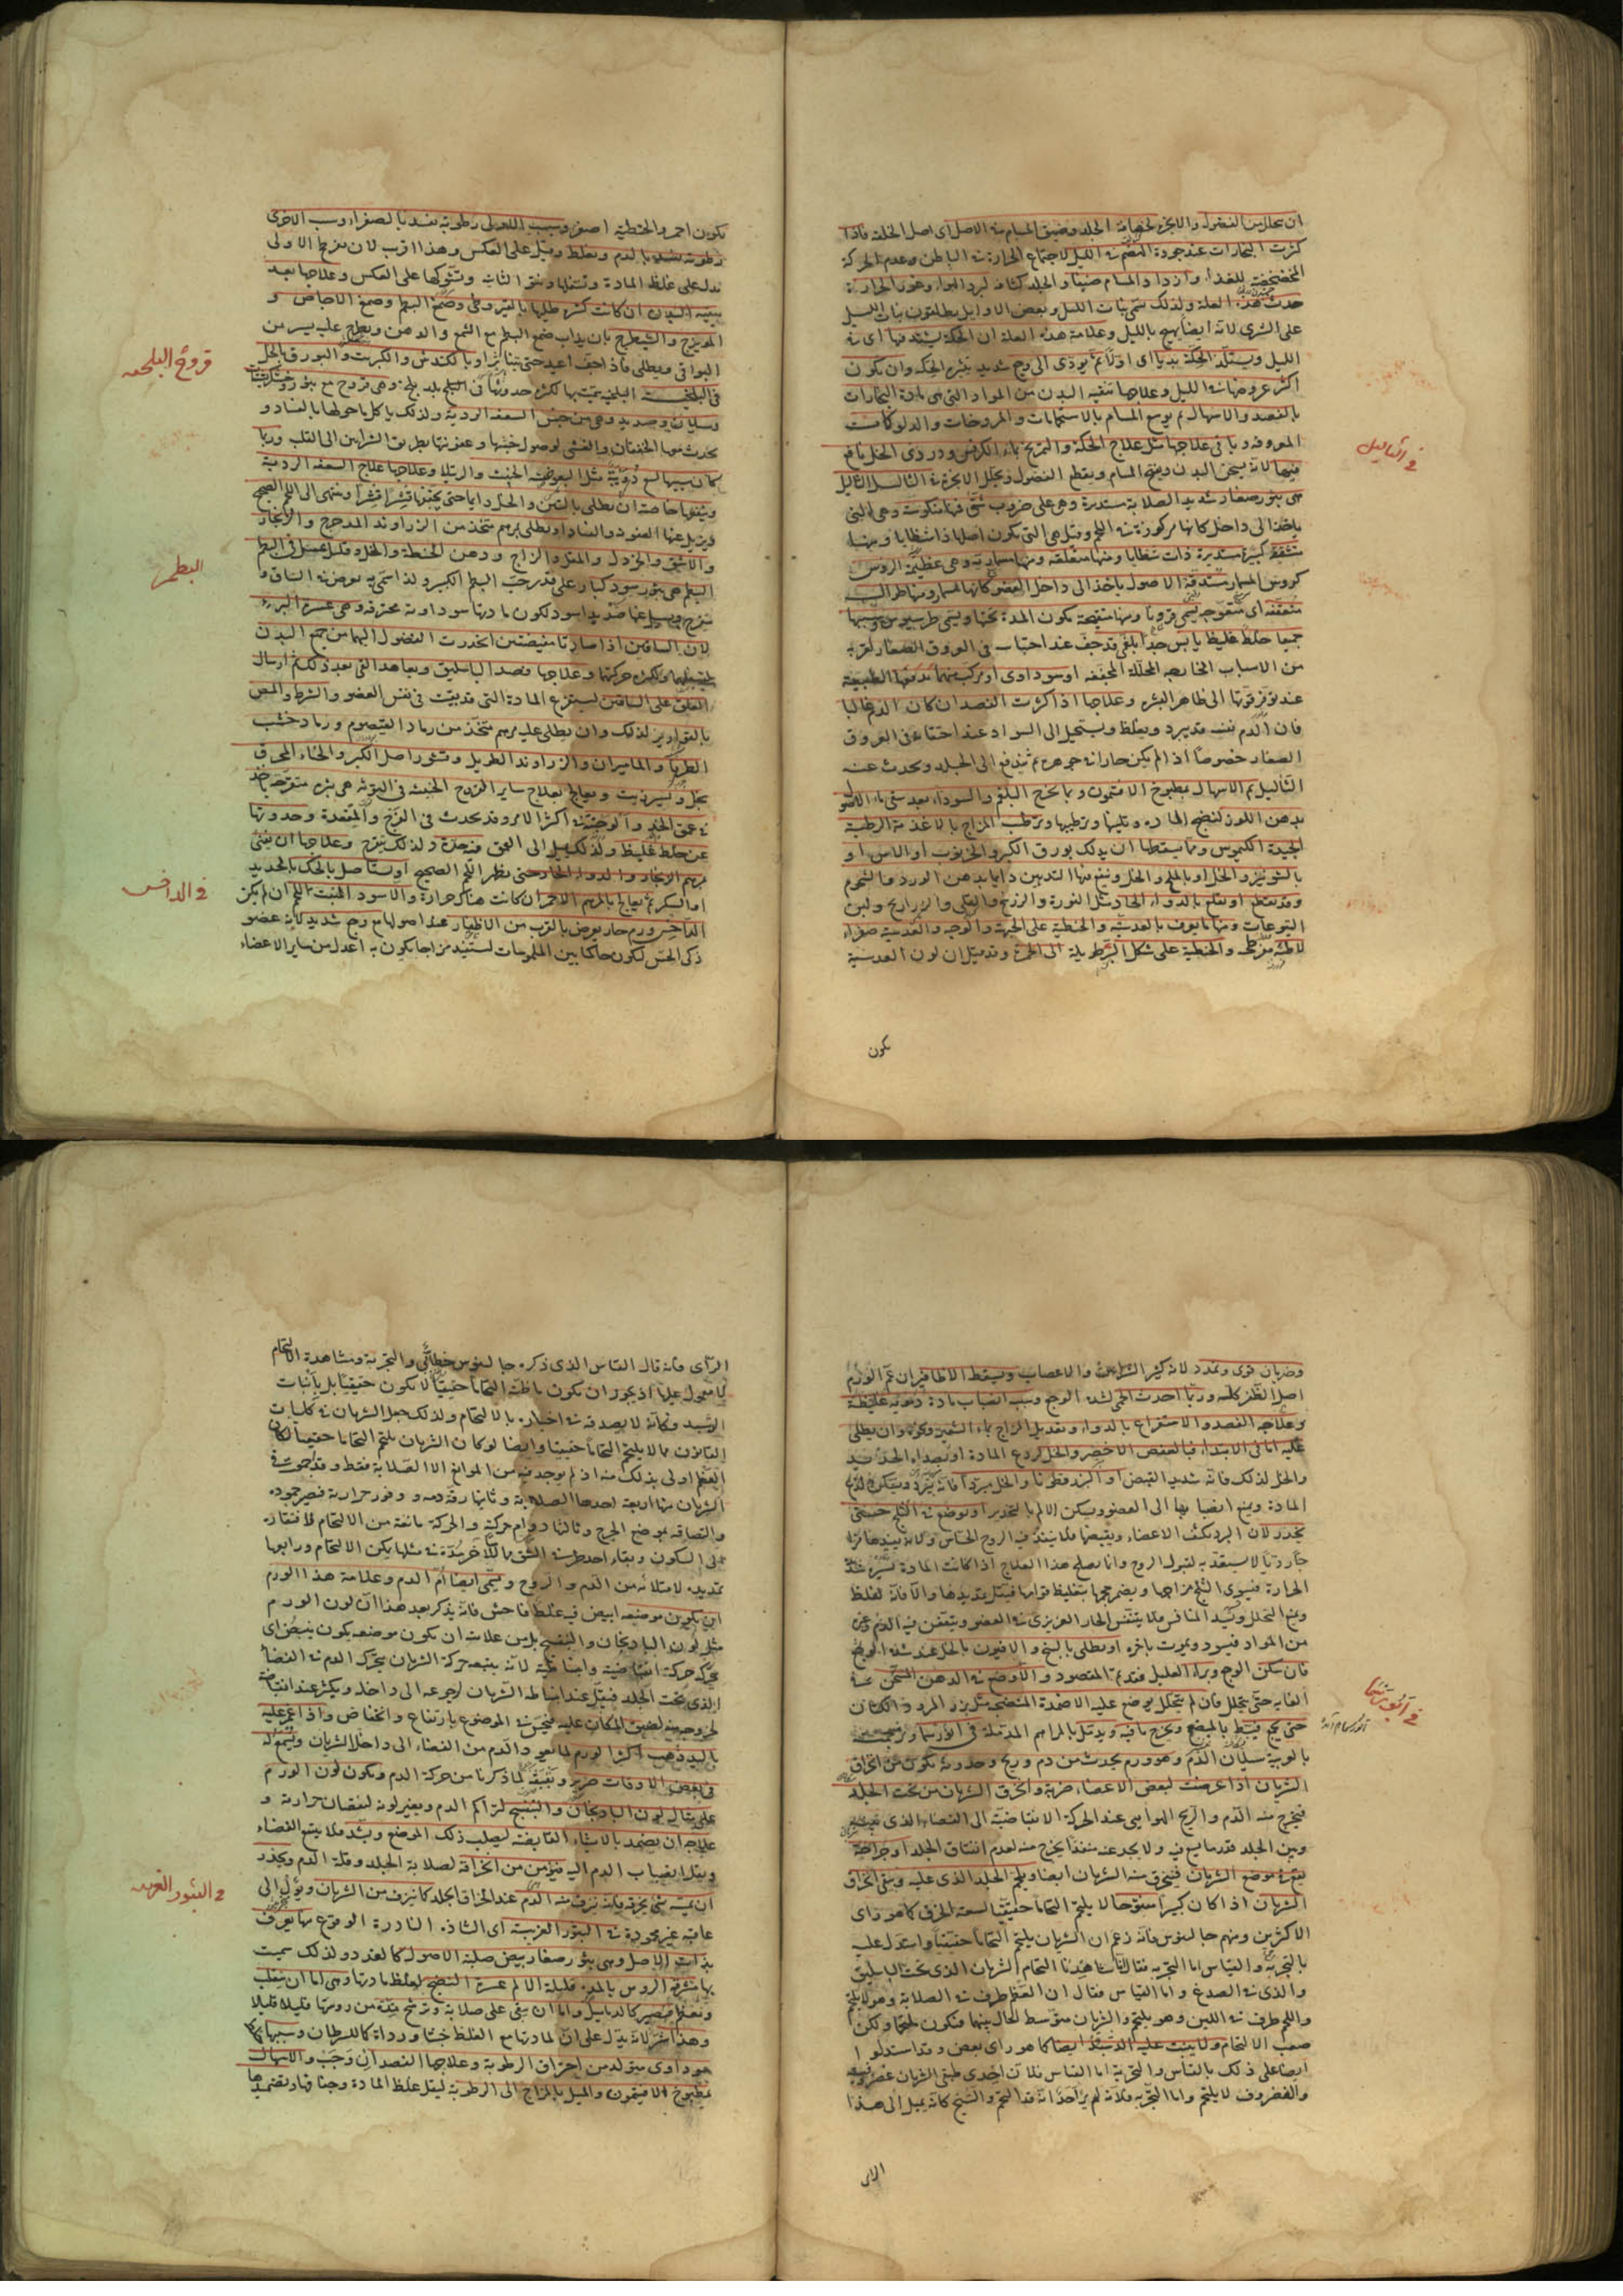 ان يتحلل من الفضول والابخرة لخصافة الجلد وضيق المسام في الاصل اى اصل الخلقة فاذا
كثرت البخارات عند جودة الهضم في الليل لاجتماع الحرارة في الباطن وعدم الحركة
للغذاء وازداد المسام ضيقا والجلد كثافة لبرد الهواء وغور الحرارة
حدثت هذه العلة ولذلك سمى بنات الليل وبعض الاوايل يطلقون بنات الليل
على الشرى لانه ايضا يهيج بالليل وعلامة هذه العلة ان الحكة يشتد فيها اى في
الليل ويستلذ الحكة بديا اى اولا ثم يودى الى وجع شديد بتبثر الحكة وان تكون
اكثر عروضها في الليل وعلاجها تنقية البدن من المواد التى هى مادة البخارات
بالفصد والاسهال ثم توسيع المسام بالاستحمامات والمروخات والدلوكات
المعروفة وباقى علاجها مثل علاج الحكة والتمريخ بماء الكرفس ودردى الخل نافع
فيها لانه يسخن البدن ويفتح المسام ويقطع الفضول ويحلل الابخرة في الثاليل الثاليل
هى بثور صغار شديدة الصلابة مستديرة وهى على ضروب شتى فمنها منكوسة وهى التى
ياخذ الى داخل كانها مركوزة في اللحم وقيل هى التى تكون اصلها ذا شظايا ومنها
متشققة كبيرة مستديرة ذات شظايا ومنها متعلقة ومنها مسمارية وهى عظيمة الروس
كروس المسمار مستدقة الاصول ياخذ الى داخل العضو كانها المسمار ومنها طوال
متعقفة اى متعوجة يسمى قرونا ومنها متقيحة تكون المدة تحتها ويسمى طرسيوس وسببها
جميعا خلط غليظ يابس جدا بلغمى قد جف عند احتباسه في العروق الصغار لغيره
من الاسباب الخارجة المحللة المجففة او سوداوى او مركب منهما تدفعها الطبيعة
عند توفر قوتها الى ظاهر البشرة وعلاجها اذا كثرت الفصد ان كان الدم غالبا
فان الدم نفسه قد يبرد ويغلظ ويستحيل الى السواد عند احتقانه في العروق
الصغار خصوصا اذا لم يكن حارا في جوهره ثم يندفع الى الجلد ويحدث عنه
الثآليل ثم الاسهال بمطبوخ الافتيمون وبما يخرج البلغم والسوداء بعد سقى ماء الاصول
بدهن اللوز لتنضج المادة وتليينها وترطيبها وترطيب المزاج بالاغذية الرطبة
الجيدة الكيموس ومما يسقطها ان يدلك بورق الكبر والخرنوب او الآس او
بالشونيز والخل او بالملح والخل وينفعها التدهين دايما بدهن الورد والشحوم
وقد يقطع او يقلع بالدواء الحاد مثل النورة والزرنيخ والقلى والذراريح ولبن
اليتوعات ومنها ما يعرف بالعدسية والحنطية على الجبهة والوجه والعدسية صفراء
لاطئة مفرطحة والحنطية على شكل البر طويلة الى الحمرة وقد قيل ان لون العدسية
تكون
في الثآليل
تكون احمر والحنطية اصفر وسبب الاولى رطوبة تفسد بالصفراء وسبب الاخرى
رطوبة تفسد بالدم وتغلظ وقيل على العكس وهذا اقرب لان تفرطح الاولى
يدل على غلظ المادة وتسفلها ونتو الثانية وتشوكها على العكس وعلاجها بعد
تنقية البدن ان كانت كثيرة طليها بالقيروطى وصمغ البطم وصمغ الاجاص و
المويزج والشيطرج بان يذاب صمغ البطم مع الشمع والدهن ويطرح عليه يسير من
البواقى ويطلى فاذا جف اعيد حتى يتناثر او بالكندش والكبريت والبورق بالخل
في البلخية البلخية سميت بها لكثرة حدوثها في البلخ بلد بلخ وهى قروح مع بثور وخشكريشات
وسيلان وصديد وهى من جنس السعفة الردية ولذلك ياكل ما حولها بالفساد و
يحدث معها الخفقان والغشى لوصول خبثها وعفونتها بطريق الشرايين الى القلب وربما
كان سببها لسع دويبة مثل البعوضة الخبيثة والرتيلا وعلاجها علاج السعفة الردية
وينفعها خاصة ان يطلى بالطين والخل دايما حتى يجففها قشرا قشرا وينتهى الى اللحم الصحيح
ويزيل عنها العفونة والفساد او يطلى بمرهم متخذ من الزراوند المدحرج والزنجار
والاشق والخردل والمقل والزاج ودهن الحنطة والخل وقليل عسل في البطم
البطم هى بثور سود كبار على قدر حب البطم الكبير ولذا سمى به تعرض في الساق و
يتقرح ويسيل عنها صديد اسود لكون مادتها سوداوية محترقة وهى عسرة البرء
لان الساقين اذا صارتا مفيضتين انحدرت الفضول اليهما من جميع البدن
لتسفلهما وكثرة حركتهما وعلاجها فصد الباسليق وتعاهد القى بعد ذلك ثم ارسال
العلق على الساقين ليستفرغ المادة التى قد بقيت في نفس العضو والشرط والمص
بالقوارير لذلك وان يطلى عليه مرهم متخذ من رماد القيصوم ورماد خشب
الطرفا والماميران والزراوند الطويل وقشور اصل الكبر والحناء المحرق
بخل ويسير زيت ويعالج بعلاج ساير القروح الخبيثة في التوثة هى بثرة متقرحة ياخذ
في عمق الخد والوجنة في اكثر الامر وقد يحدث في الفرج والمقعدة وحدوثها
عن خلط غليظ ولذلك يميل الى العمق مع حدة ولذلك يتقرح وعلاجها ان يفنى
بمرهم الزنجار والدواء الحاد حتى يظهر اللحم الصحيح او يستاصل بالحك بالحديد
او بالسكر ثم يعالج بالمرهم الاحمر ان كانت هناك حرارة والاسود المنبت للحم ان لم يكن
الداحس ورم حار يعرض بالقرب من الاظفار عند اصولها مع وجع شديد لانه عضو
ذكى الحس لكون حاكما بين الملموسات ليستفيد مزاجا يكون به اعدل من ساير الاعضاء
قروح البلخية
البطم
في الداحس
وضربان قوى وتمدد لانه كثير الشرايين والاعصاب ويسقط الاظافير ان عم الورم
اصل الظفر كله وربما احدث الحمى لشدة الوجع وسببه انصباب مادة دموية غليظة
وعلاجه الفصد والاستفراغ بالدواء وتعديل المزاج بماء الشعير ونحوه وان يطلى
عليه اما في الابتداء فبالعفص الاخضر والخل لردع المادة او بصداء الحديد
والخل لذلك فانه شديد القبض او البزرقطونا والخل مبردا
المادة ويمنع انصبابها الى العضو ويسكن الالم بالتخدير او يوضع في الثلج حتى
يخدر لان البرد يكثف الاعضاء ويقبضها فلا ينفذ فيه الروح الحساس ولانه يفيدها مزاجا
باردا لا يستعد به لقبول الروح وانما يصلح هذا العلاج اذا كانت المادة يسيرة شديدة
الحرارة فيسوى الثلج مزاجها ويضمر حجمها بتغليظ قوامها فيقل تمديدها والا فانه لغلظ
ويمنع التحلل ويسد المنافس فلا يتنفس الحار الغريزى في العضو ويتعفن فيه الدم وغيره
من المواد فيسود ويموت باخره او يطلى بالبنج والافيون بالخل عند شدة الوجع
فان سكن الوجع وبراء العليل فذلك المقصود والا وضع في الدهن المسخن في
الغاية حتى يتحلل فان لم يتحلل يوضع عليه الاضمدة المنضجة مثل بزر المرو والكتان
حتى يجمع فيبط بالمبضع ويخرج ما فيه ويدمل بالمراهم المدملة في انورسما وترجمته
بالعربية سيلان الدم وهو ورم يحدث من دم وريح وحدوثه يكون من انخراق
الشريان اذا عرضت لبعض الاعضاء ضربة وانخرق الشريان من تحت الجلد
فيخرج منه الدم والريح الهوايى عند الحركة الانقباضية الى الفضاء الذى بينه
وبين الجلد قدر ما يسع فيه ولا يجد عنه منفذا يخرج منه لعدم انشقاق الجلد او جراحة
يقع في موضع الشريان فينخرق منه الشريان ايضا ويلتحم الجلد الذى عليه ويبقى انخراق
الشريان اذا كان كبيرا مفتوحا لا يلتحم التحاما حقيقيا لسعة الخرق كما هو راى
الاكثرين ومنهم جالينوس فانه زعم ان الشريان يلتحم التحاما حقيقيا واستدل عليه
بالتجربة والقياس اما التجربة فقال انا شاهدنا التحام الشريان الذى تحت الباسليق
والذى في الصدغ واما القياس فقال ان العظم طرف في الصلابة وهو لا يلتحم
واللحم طرف في اللين وهو يلتحم والشريان متوسط الحال بينهما فيكون يلتحم ولكن
صعب الالتحام ولا يثبت عليه الدشبذ ايضا كما هو راى بعض وقد استدلوا
ايضا على ذلك بالقياس والتجربة اما القياس فلان احدى طبقتى الشريان غضروفية
والغضروف لا يلتحم واما التجربة فلانه لم ير احد انه قد التحم والشيخ كانه يميل الى هذا
الراى
في انورسما
الراى فانه قال القياس الذى ذكره جالينوس خطابى والتجربة ومشاهدة الالتحام
لا معول عليها اذ يجوز ان تكون ما ظنه التحاما حقيقيا لا يكون حقيقيا بل بانبات
الدشبذ وكانه لا يصدقه في اخباره بالالتحام ولذلك جعل الشريان في كليات
القانون مما لا يلتحم التحاما حقيقيا وايضا لو كان الشريان يلتحم التحاما حقيقيا لكان
العظم اولى بذلك منه اذ لم يوجد فيه من الموانع الا الصلابة فقط وقد اجتمعت في
الشريان منها اربعة احدها الصلابة وثانيها رقة دمه ووفور حرارته فيعسر جموده
والتصاقه بموضع الجرح وثالثها دوام حركته والحركة مانعة من الالتحام لافتقاره
الى السكون وبقاء احد طرفى الشق ملاقيا للآخر مدة في مثلها يمكن الالتحام ورابعها
تمديده لامتلائه من الدم والروح ويسمى ايضا ام الدم وعلامة هذا الورم
ان يكون موضعه ابيض فيه غلظ فاحش فانه يذكر بعد هذا ان لون الورم
مثل لون الباذنجان والبنفسج بل من علاماته ان يكون موضعه يكون ينبض اى
يتحرك حركة انقباضية وانبساطية لانه يتبعه حركة الشريان يتحرك الدم في الفضاء
الذى تحت الجلد فيقل عند انبساط الشريان لرجوعه الى داخله ويكثر عند انقباضه
لخروجه منه لضيق المكان عليه فيحس في الموضع بارتفاع وانخفاض واذا غمز عليه
باليد ذهب اكثر الورم لما يعود الدم من الفضاء الى داخل الشريان ويسمع له
في بعض الاوقات خرير وبقبقة لما ذكرنا من حركة الدم ويكون لون الورم
على مثال لون الباذنجان والبنفسج لتراكم الدم وتغير لونه لنقصان حرارته و
علاجه ان يضمد بالاشياء القابضة ليصلب ذلك الموضع ويشتد فلا يتسع الفضاء
ويقل انصباب الدم اليه ويؤمن من انخراقه لصلابة الجلد وقلة الدم ويحذر
ان يمسه شى يخرقه فانه ينزف منه الدم عند انخراق الجلد كما ينزف من الشريان ويؤل الى
عاقبة غير محمودة في البثور الغريبة اى الشاذة النادرة الوقوع منها ما يعرف
بذات الاصل وهى بثور صغار بيض صلبة الاصول كالغدد ولذلك سميت
بها متقرحة الروس بالمدة قليلة الالم عسرة النضج لغلظ مادتها وهى اما ان ينقلب
وتعظم فيصير كالدماميل واما ان يبقى على صلابة وترشح مدة من روسها قليلا قليلا
وهذا شر لانه يدل على ان لمادتها مع الغلظ خبثا ورداءة كالسرطان وسببها
سوداوى يتولد من احتراق الرطوبة وعلاجها الفصد ان وجب والاسهال
بمطبوخ الافتيمون والميل بالمزاج الى الرطوبة ليقل غلظ المادة وجفافها وتضميدها
في البثور الغريبة